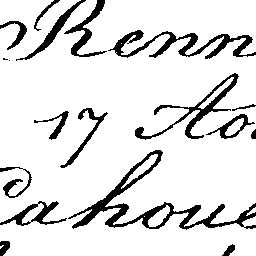 Renn
17 Ao
Cahoue